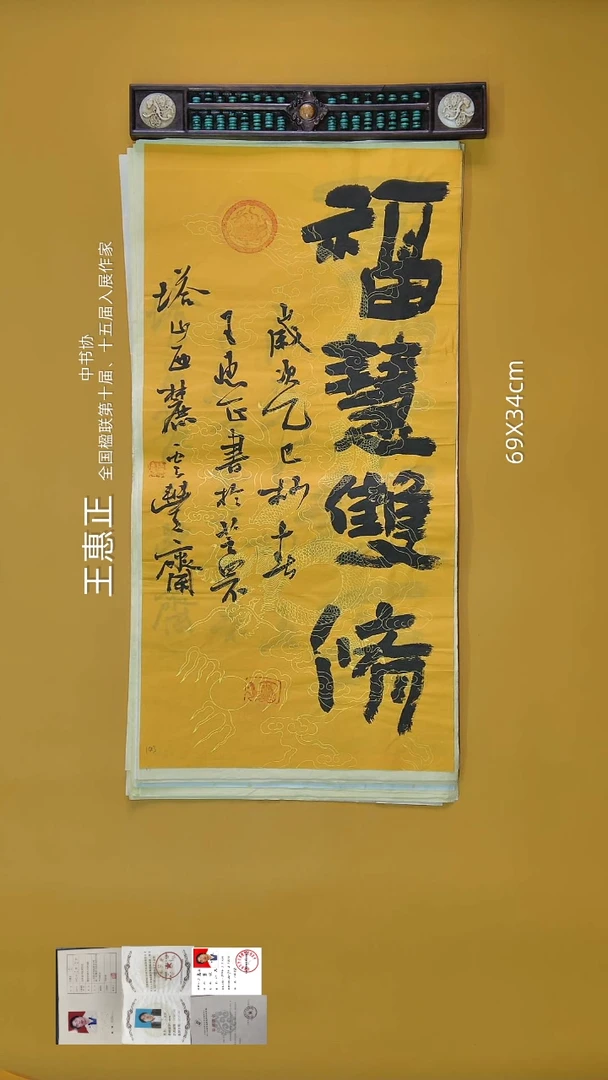 福慧雙脩
歲次乙巳杪春
王惠正書於芝罘
塔山西麓雲齋
王惠正
中书协
全国楹联第十届、十五届入展作家
69X34cm